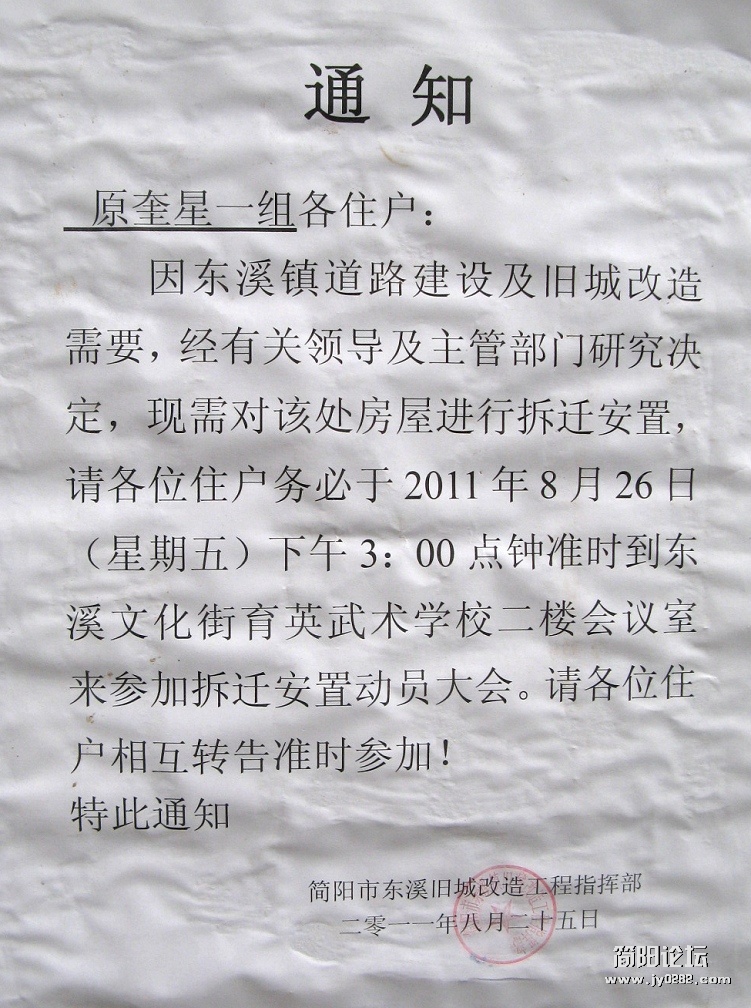 通知
原奎星一组各住户：
因东溪镇道路建设及旧城改造
需要，经有关领导及主管部门研究决
定，现需对该处房屋进行拆迁安置，
请各位住户务必于2011年8月26日
（星期五）下午3：00点钟准时到东
溪文化街育英武术学校二楼会议室
来参加拆迁安置动员大会。请各位住
户相互转告准时参加！
特此通知
简阳市东溪旧城改造工程指挥部
二零一一年八月二十五日
简阳论坛
www.jy0282.com